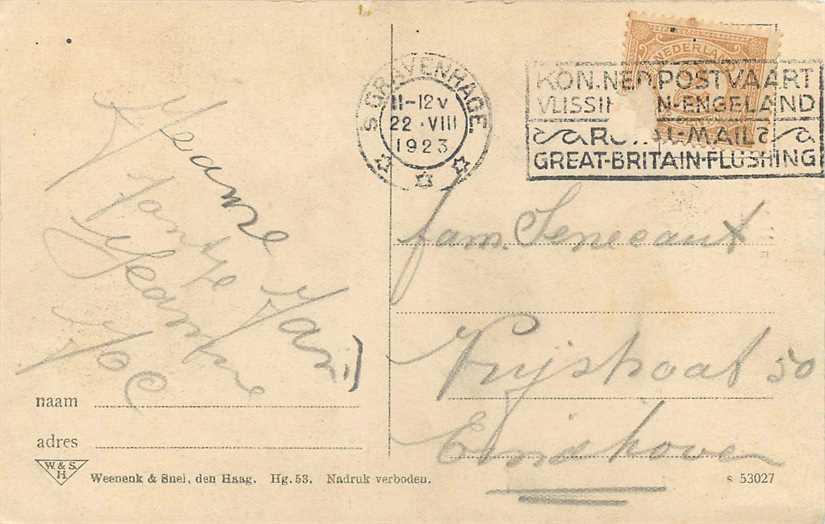 NEDERLAND
'S GRAVENHAGE.
11-12V
22 · VIII
1923
KON.NED.POSTVAART
VLISSINGEN-ENGELAND
ROYAL-MAIL
GREAT-BRITAIN-FLUSHING
Jeanne
Jantje Jan
Jeanne
fam. Seneeaut
Vrijstraat 50
Eindhoven
naam
adres
W. & S.
H
Weenenk & Snel, den Haag. Hg. 53. Nadruk verboden.
s 53027